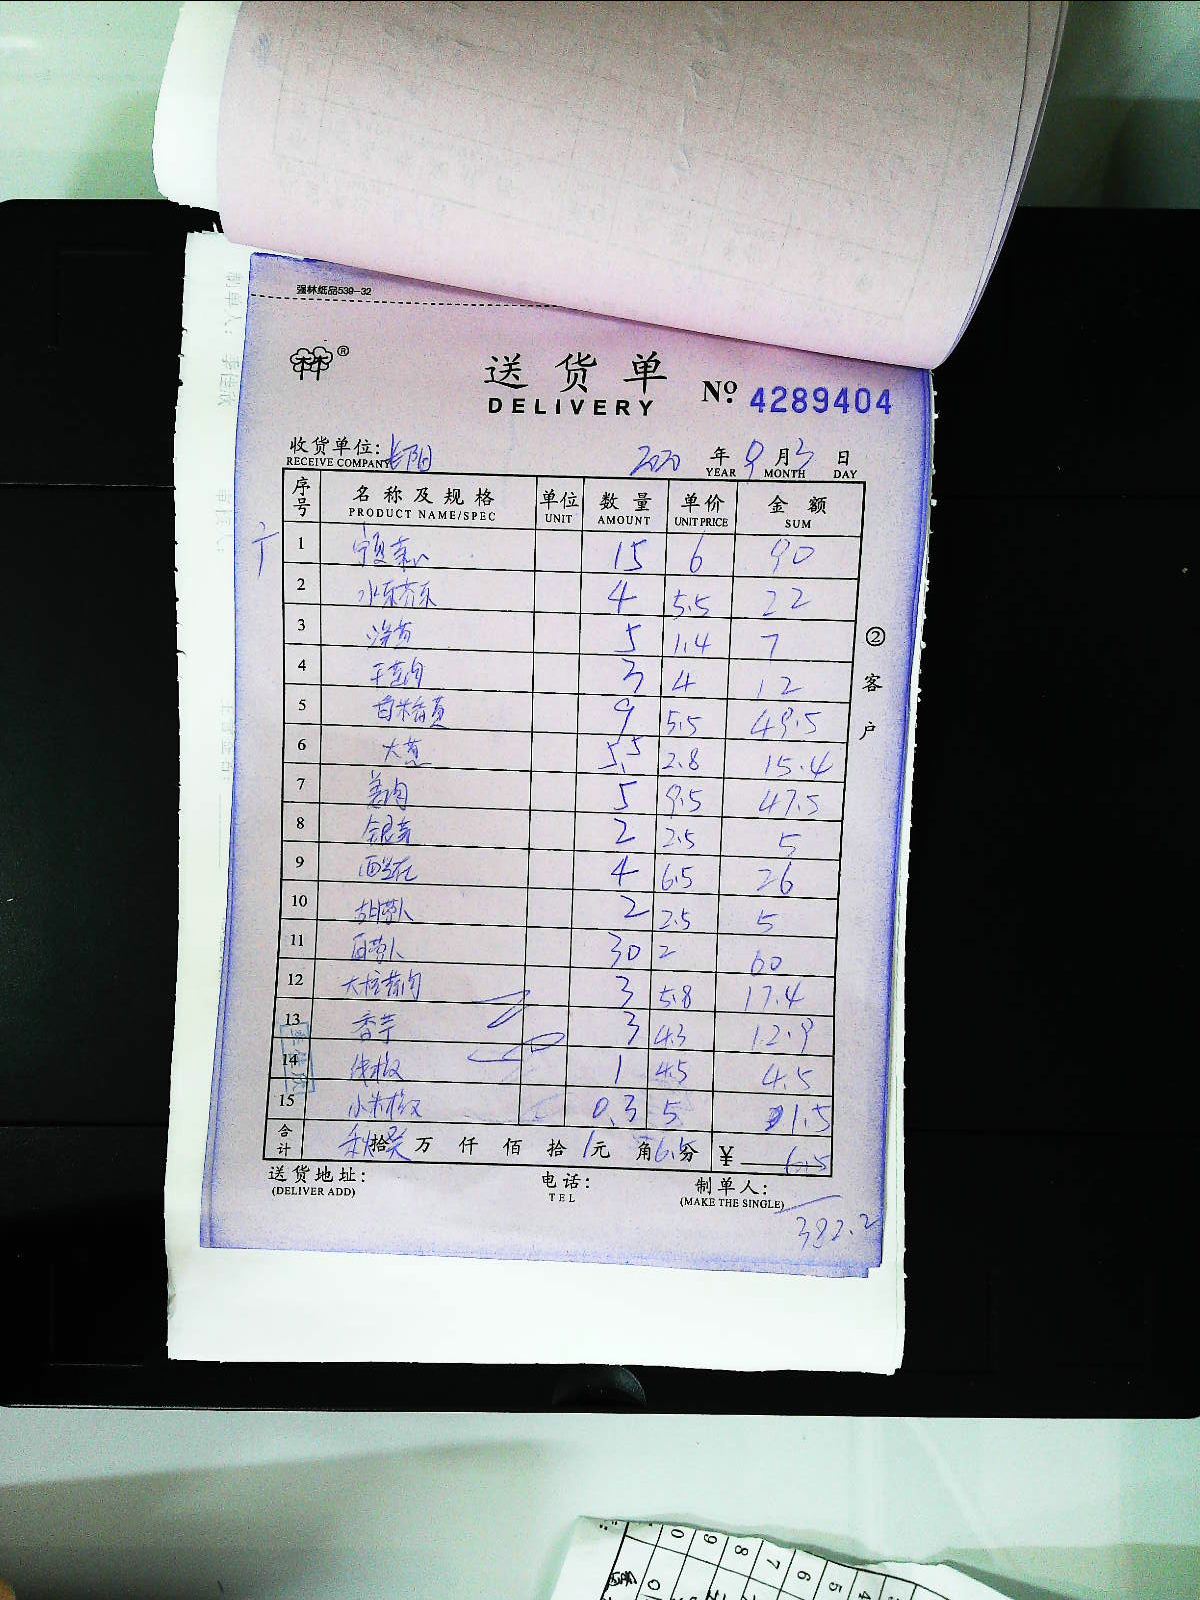 强林纸品539-32
送货单
DELIVERY
No 4289404
收货单位: 长阳 2020 年 9 月 3 日
RECEIVE COMPANY YEAR MONTH DAY
序号 名称及规格 单位 数量 单价 金额
PRODUCT NAME/SPEC UNIT AMOUNT UNIT PRICE SUM
1 宁夏菜心 15 6 90
2 4 5.5 22
3 5 1.4 7
4 3 4 12
5 9 5.5 49.5
6 大葱 5.5 2.8 15.4
7 姜肉 5 9.5 47.5
8 银芽 2 2.5 5
9 西兰花 4 6.5 26
10 胡萝卜 2 2.5 5
11 白萝卜 30 2 60
12 3 5.8 17.4
13 香芋 3 4.3 12.9
14 线椒 1 4.5 4.5
15 小米椒 0.3 5 1.5
合计 拾 万 仟 佰 拾 1 元 角 6.5 分 ¥ 6.5
送货地址: 电话: 制单人:
(DELIVER ADD) TEL (MAKE THE SINGLE)
382.2
② 客户